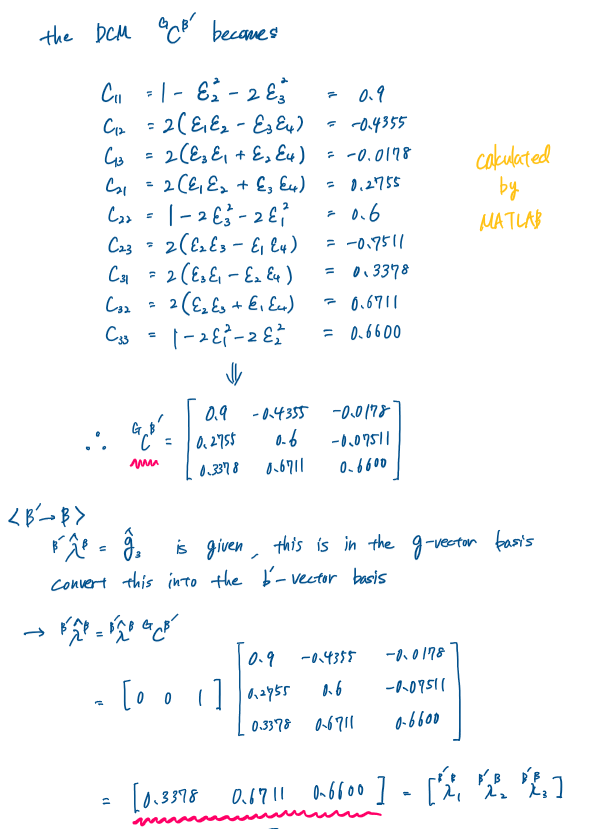 the DCM ᴳCᴮ′ becomes
C₁₁ = 1 - ε₂² - 2ε₃² = 0.9
C₁₂ = 2(ε₁ε₂ - ε₃ε₄) = -0.4355
C₁₃ = 2(ε₃ε₁ + ε₂ε₄) = -0.0178
C₂₁ = 2(ε₁ε₂ + ε₃ε₄) = 0.2755
C₂₂ = 1 - 2ε₃² - 2ε₁² = 0.6
C₂₃ = 2(ε₂ε₃ - ε₁ε₄) = -0.7511
C₃₁ = 2(ε₃ε₁ - ε₂ε₄) = 0.3378
C₃₂ = 2(ε₂ε₃ + ε₁ε₄) = 0.6711
C₃₃ = 1 - 2ε₁² - 2ε₂² = 0.6600
calculated
by
MATLAB
⇓
∴ ᴳCᴮ′ = [ 0.9 -0.4355 -0.0178
0.2755 0.6 -0.07511
0.3378 0.6711 0.6600 ]
<B′→B>
ᴮ′λ̂ᴮ = ĝ₃ is given, this is in the g-vector basis
convert this into the b′-vector basis
→ ᴮ′λ̂ᴮ = ᴮ′λ̂ᴮ ᴳCᴮ′
= [0 0 1] [ 0.9 -0.4355 -0.0178
0.2755 0.6 -0.07511
0.3378 0.6711 0.6600 ]
= [0.3378 0.6711 0.6600] = [ᴮ′λ₁ᴮ ᴮ′λ₂ᴮ ᴮ′λ₃ᴮ]